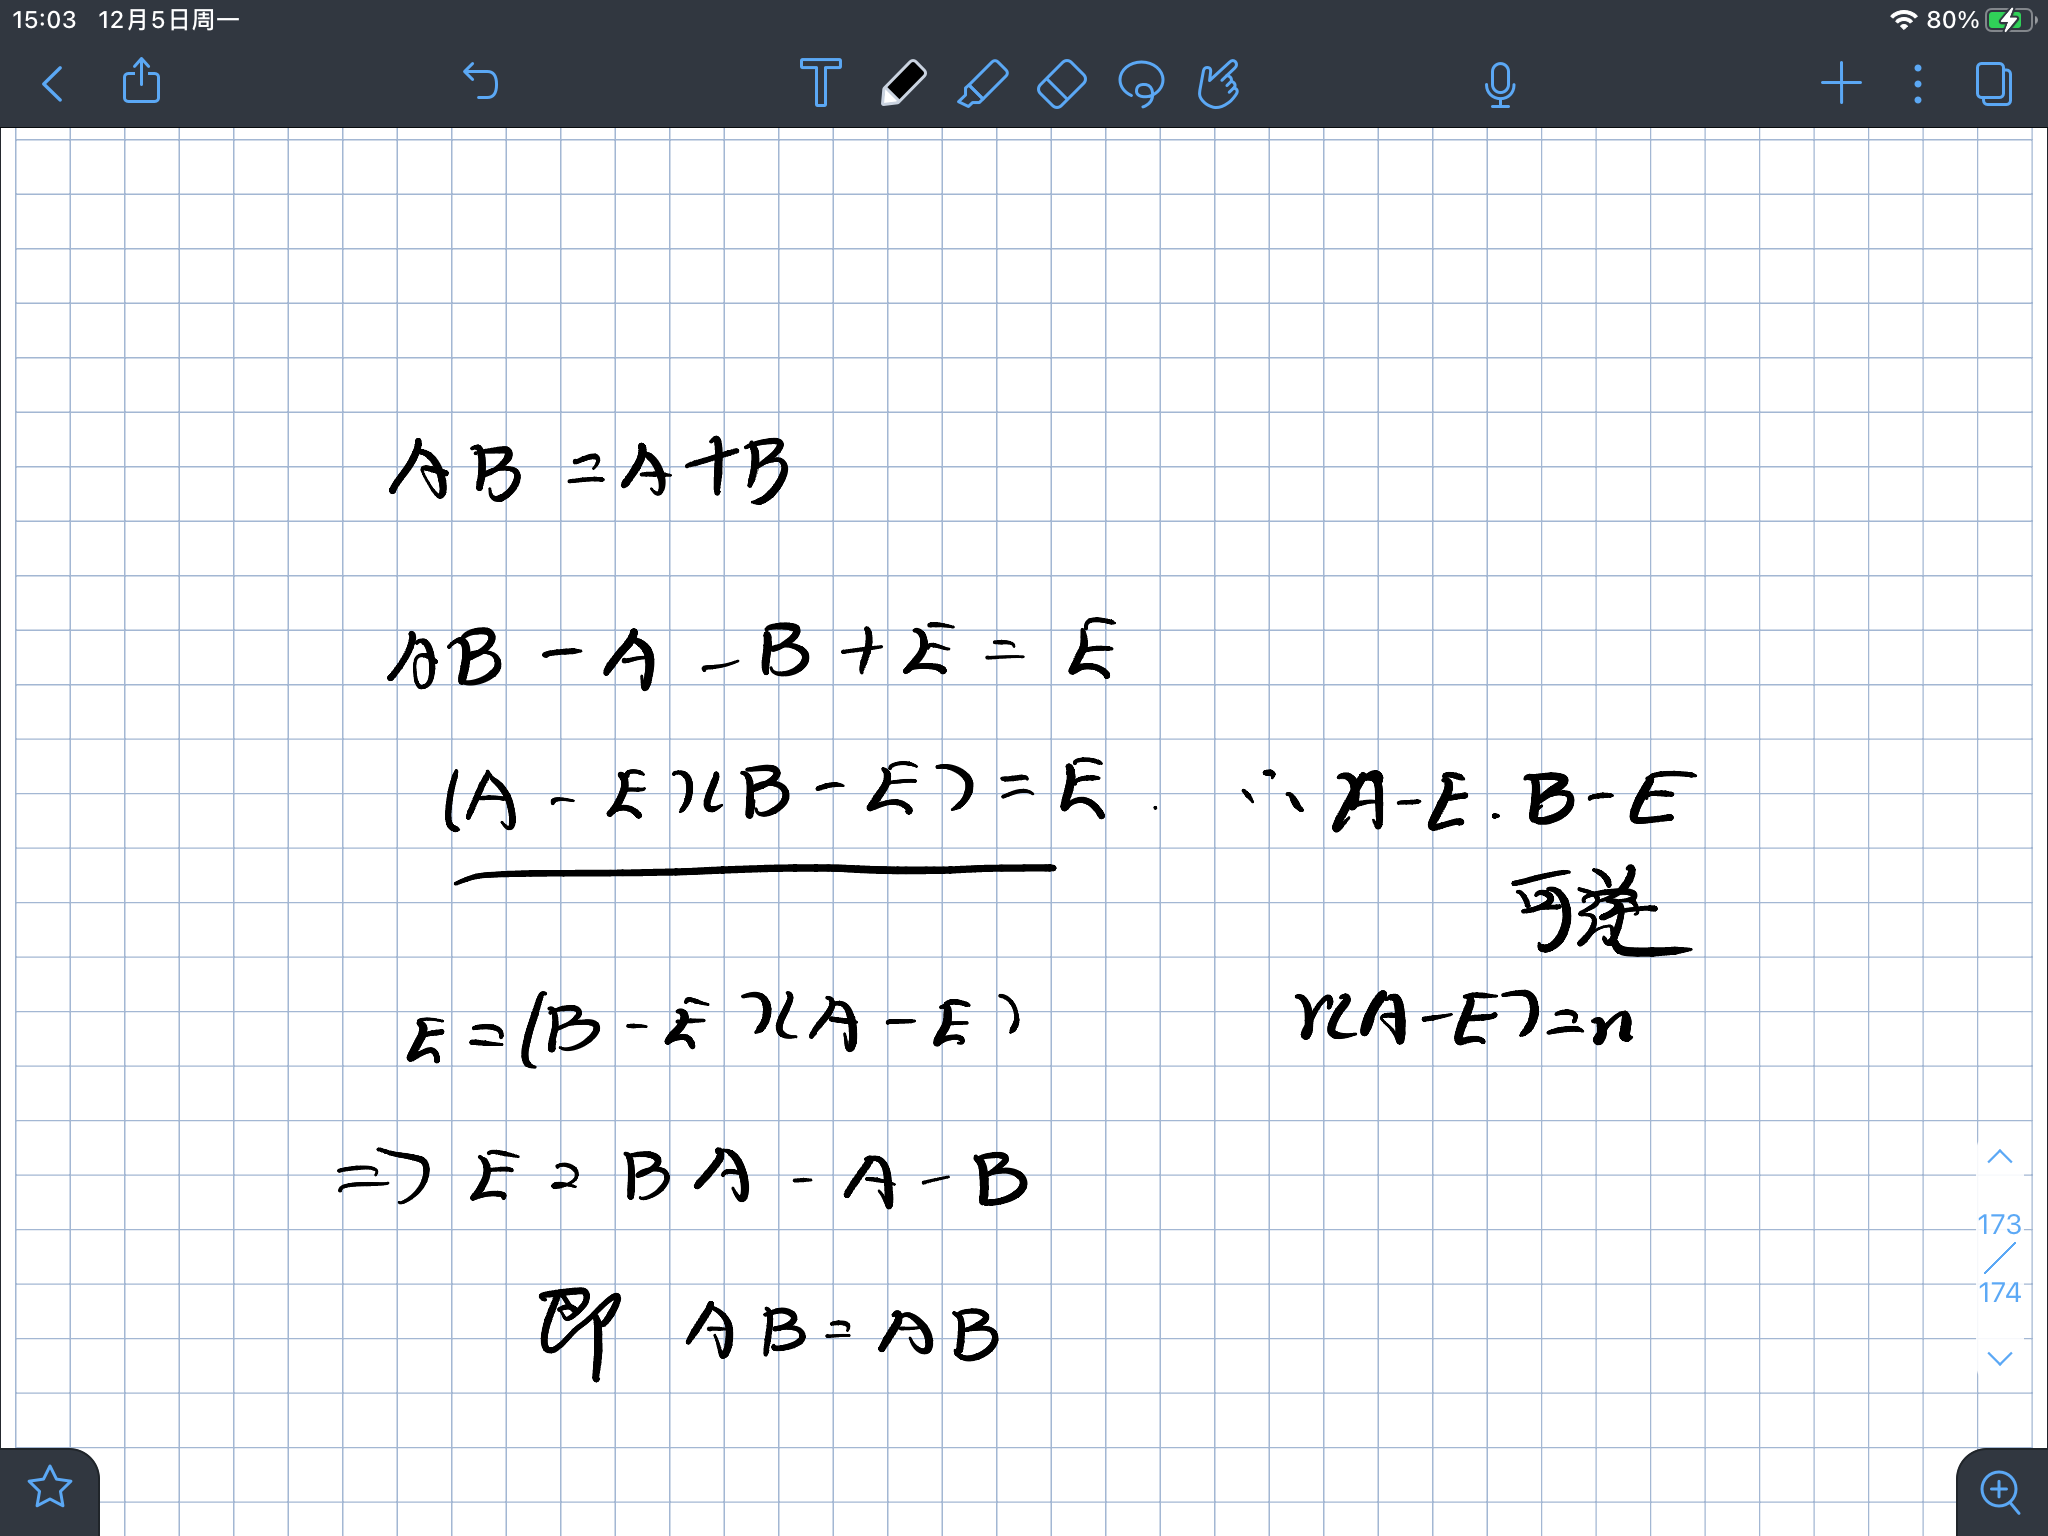 15:03 12月5日周一
80%
T
AB = A+B
AB - A - B + E = E
(A - E)(B - E) = E. ∴ A-E. B-E
可逆
E = (B - E)(A - E)
r(A-E)=n
=> E = BA - A - B
即 AB = AB
173
174